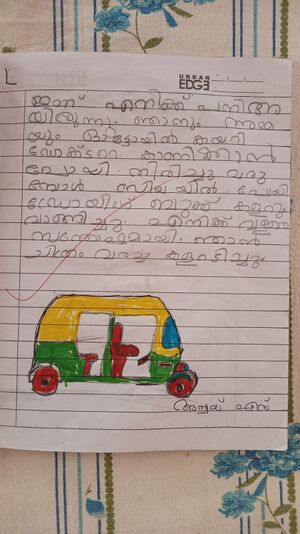 L
URBAN
EDGE
ഇന്ന് എനിക്ക് പനിആ
യിരുന്നു. ഞാനും അമ്മ
യും ഓട്ടോയിൽ കയറി
ഡോക്ടറെ കാണിത്തിൻ
പോയി. തിരിച്ചു വരു
മ്പോൾ പോയി
ഡ്രോയിംഗ് ബുക്ക് കളറും
വാങ്ങിച്ചു. എനിക്ക് വളരെ
സന്തോഷമായി. ഞാൻ
ചിത്രം വരച്ചു കളറടിച്ചു.
എസ്